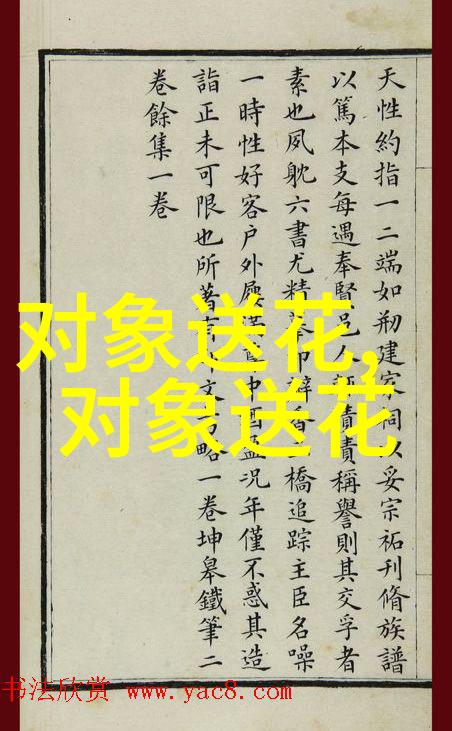 天性約指一二端如剏建家祠以妥宗祏刊脩族譜
以篤本支每遇奉賢邑人嘖嘖稱譽則其交孚者
素也夙躭六書尤精摹印香橋追踪主臣名噪
一時性好客户外屨滿中酒盈况年僅不惑其造
詣正未可限也所著有文略一卷坤皋鐵筆二
卷餘集一卷
对象送花,
对象送花
书法欣赏 www.yac8.com